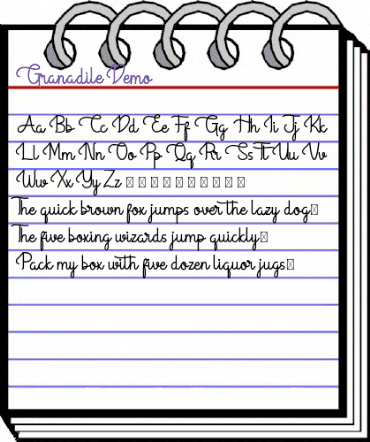 Granadile Demo
Aa Bb Cc Dd Ee Ff Gg Hh Ii Jj Kk
Ll Mm Nn Oo Pp Qq Rr Ss Tt Uu Vv
Ww Xx Yy Zz
The quick brown fox jumps over the lazy dog
The five boxing wizards jump quickly
Pack my box with five dozen liquor jugs